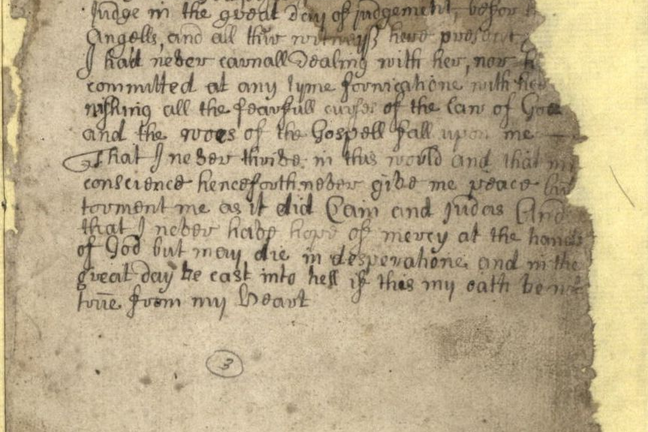 Judge in the great day of judgement, befor
Angells, and all thir witness here present
I had never carnall Dealing with her, nor
committed at any tyme fornicatione with her
wishing all the fearfull curses of the law of God
and the woes of the Gospell fall upon me
That I never thrive in this world and that my
conscience henceforth never give me peace but
torment me as it did Cain and Judas And
that I never have hope of mercy at the hands
of God but may die in desperatione and in the
great day be cast into hell if this my oath be not
trūe from my heart
3